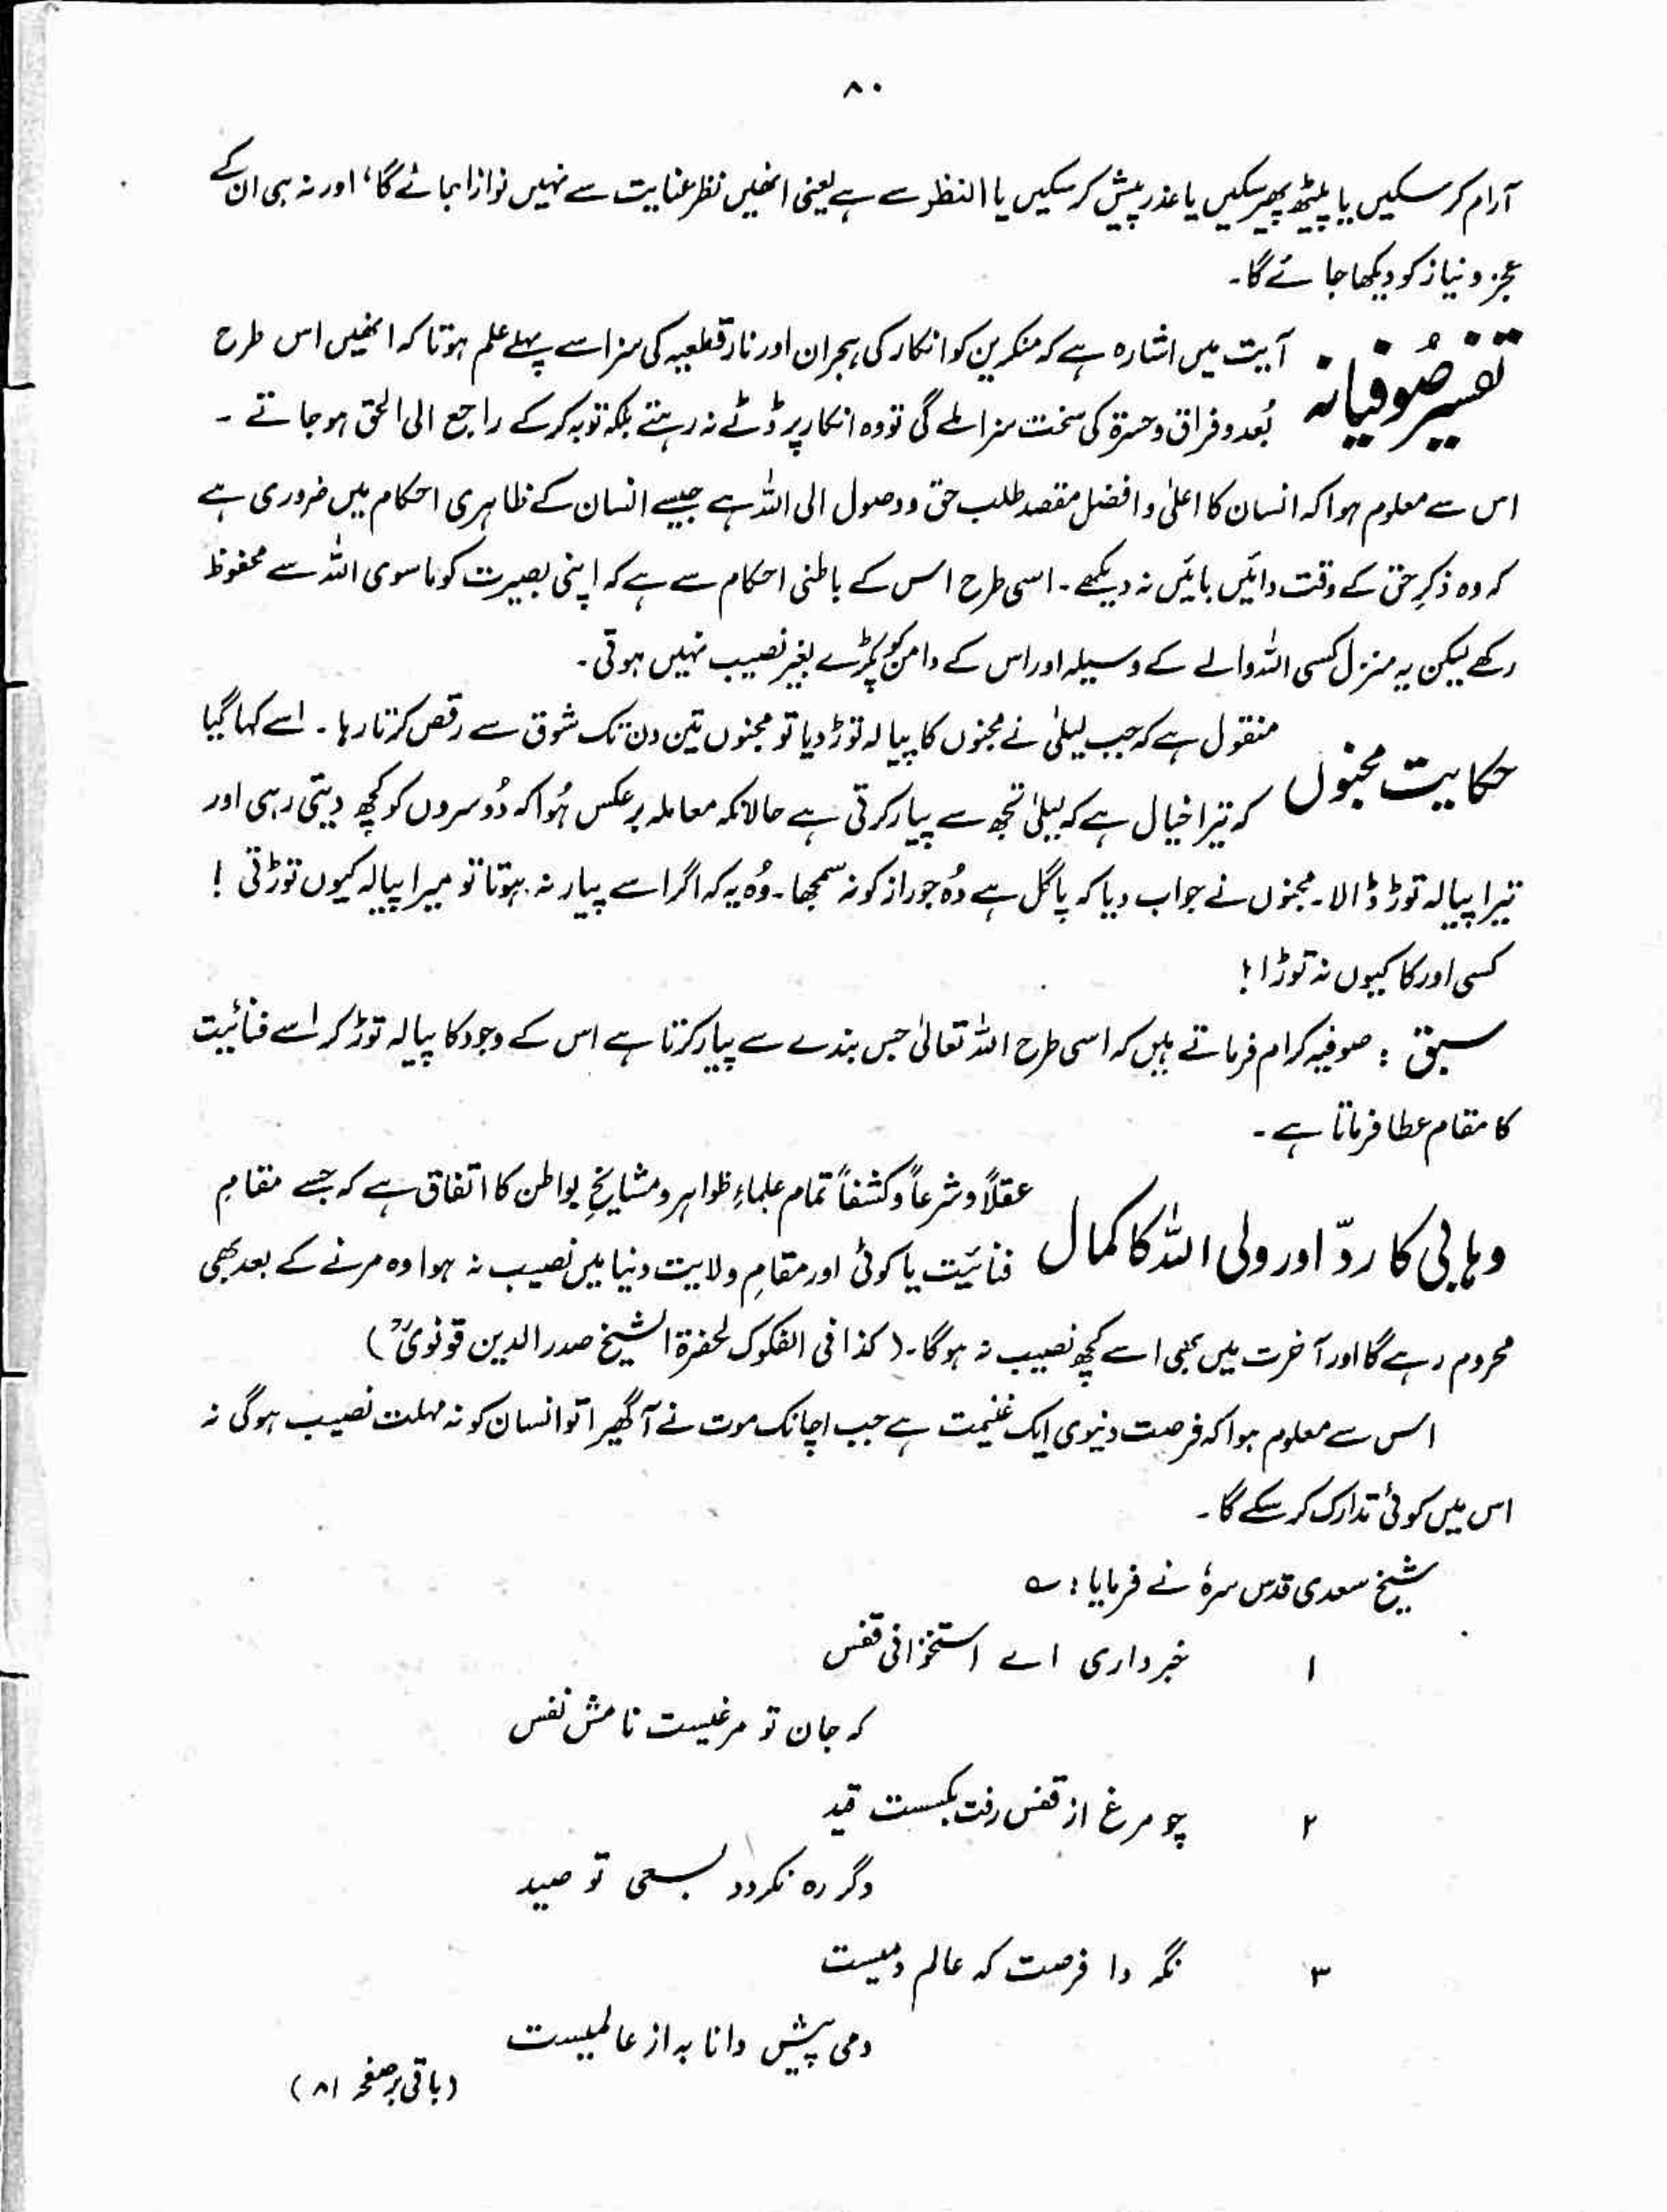 ۸۰
آرام کر سکیں یا پیٹھ پھیر سکیں یا عذر پیش کر سکیں یا النظر سے ہے یعنی انھیں نظر عنایت سے نہیں نوازا جائے گا، اور نہ ہی ان کے
عجز و نیاز کو دیکھا جائے گا۔
تفسیر صُوفیانہ آیت میں اشارہ ہے کہ منکرین کو انکار کی ہجران اور نار قطعیہ کی سزا سے پہلے علم ہوتا کہ انھیں اس طرح
بُعد و فراق و حسرۃ کی سخت سزا ملے گی تو وہ انکار پر ڈٹے نہ رہتے بلکہ توبہ کر کے راجع الی الحق ہو جاتے ۔
اس سے معلوم ہوا کہ انسان کا اعلیٰ و افضل مقصد طلب حق و وصول الی اللہ ہے جیسے انسان کے ظاہری احکام میں ضروری ہے
کہ وہ ذکرِ حق کے وقت دائیں بائیں نہ دیکھے ۔ اسی طرح اس کے باطنی احکام سے ہے کہ اپنی بصیرت کو ماسوی اللہ سے محفوظ
رکھے لیکن یہ منزل کسی اللہ والے کے وسیلہ اور اس کے دامن کو پکڑے بغیر نصیب نہیں ہوتی ۔
حکایت مجنوں منقول ہے کہ جب لیلیٰ نے مجنوں کا پیالہ توڑ دیا تو مجنوں تین دن تک شوق سے رقص کرتا رہا ۔ اسے کہا گیا
کہ تیرا خیال ہے کہ لیلیٰ تجھ سے پیار کرتی ہے حالانکہ معاملہ برعکس ہُوا کہ دُوسروں کو کچھ دیتی رہی اور
تیرا پیالہ توڑ ڈالا ۔ مجنوں نے جواب دیا کہ پاگل ہے وُہ جو راز کو نہ سمجھا ۔ وُہ یہ کہ اگر اسے پیار نہ ہوتا تو میرا پیالہ کیوں توڑتی !
کسی اور کا کیوں نہ توڑا !
سبق : صوفیہ کرام فرماتے ہیں کہ اسی طرح اللہ تعالیٰ جس بندے سے پیار کرتا ہے اس کے وجود کا پیالہ توڑ کر اسے فنائیت
کا مقام عطا فرماتا ہے ۔
وہابی کا ردّ اور ولی اللہ کا کمال عقلاً و شرعاً و کشفاً تمام علماءِ ظواہر و مشایخِ بواطن کا اتفاق ہے کہ جسے مقامِ
فنائیت یا کوئی اور مقامِ ولایت دنیا میں نصیب نہ ہوا وہ مرنے کے بعد بھی
محروم رہے گا اور آخرت میں بھی اسے کچھ نصیب نہ ہو گا ۔ (کذا فی الفکوک لحضرۃ الشیخ صدر الدین قونویؒ)
اس سے معلوم ہوا کہ فرصت دنیوی ایک غنیمت ہے جب اچانک موت نے آ گھیرا تو انسان کو نہ مہلت نصیب ہوگی نہ
اس میں کوئی تدارک کر سکے گا ۔
شیخ سعدی قدس سرہٗ نے فرمایا : ؎
۱ خبرداری اے استخوانی قفس
کہ جان تو مرغیست نامش نفس
۲ چو مرغ از قفس رفت بگسست قید
دگر رہ نگردد بسعی تو صید
۳ نگہ دا فرصت کہ عالم دمیست
دمی پیش دانا بہ از عالمیست
(باقی بر صفحہ ۸۱)